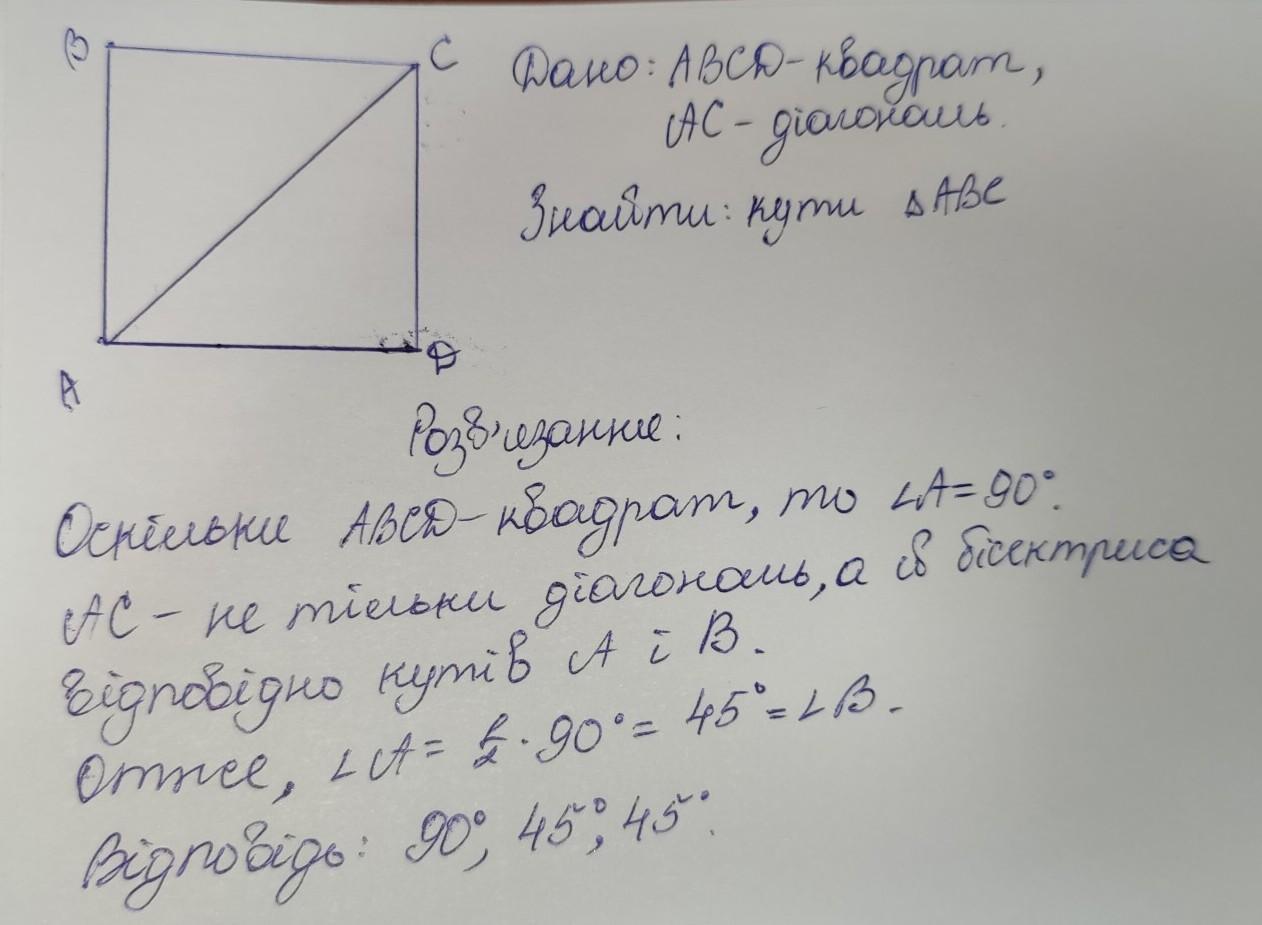 B
C
Дано: ABCD - квадрат,
AC - діагональ.
Знайти: кути △ABC
A
D
Розв'язання:
Оскільки ABCD - квадрат, то ∠A = 90°.
AC - не тільки діагональ, а й бісектриса
відповідно кутів A і B.
Отже, ∠A = 1/2 · 90° = 45° = ∠B.
Відповідь: 90°, 45°, 45°.